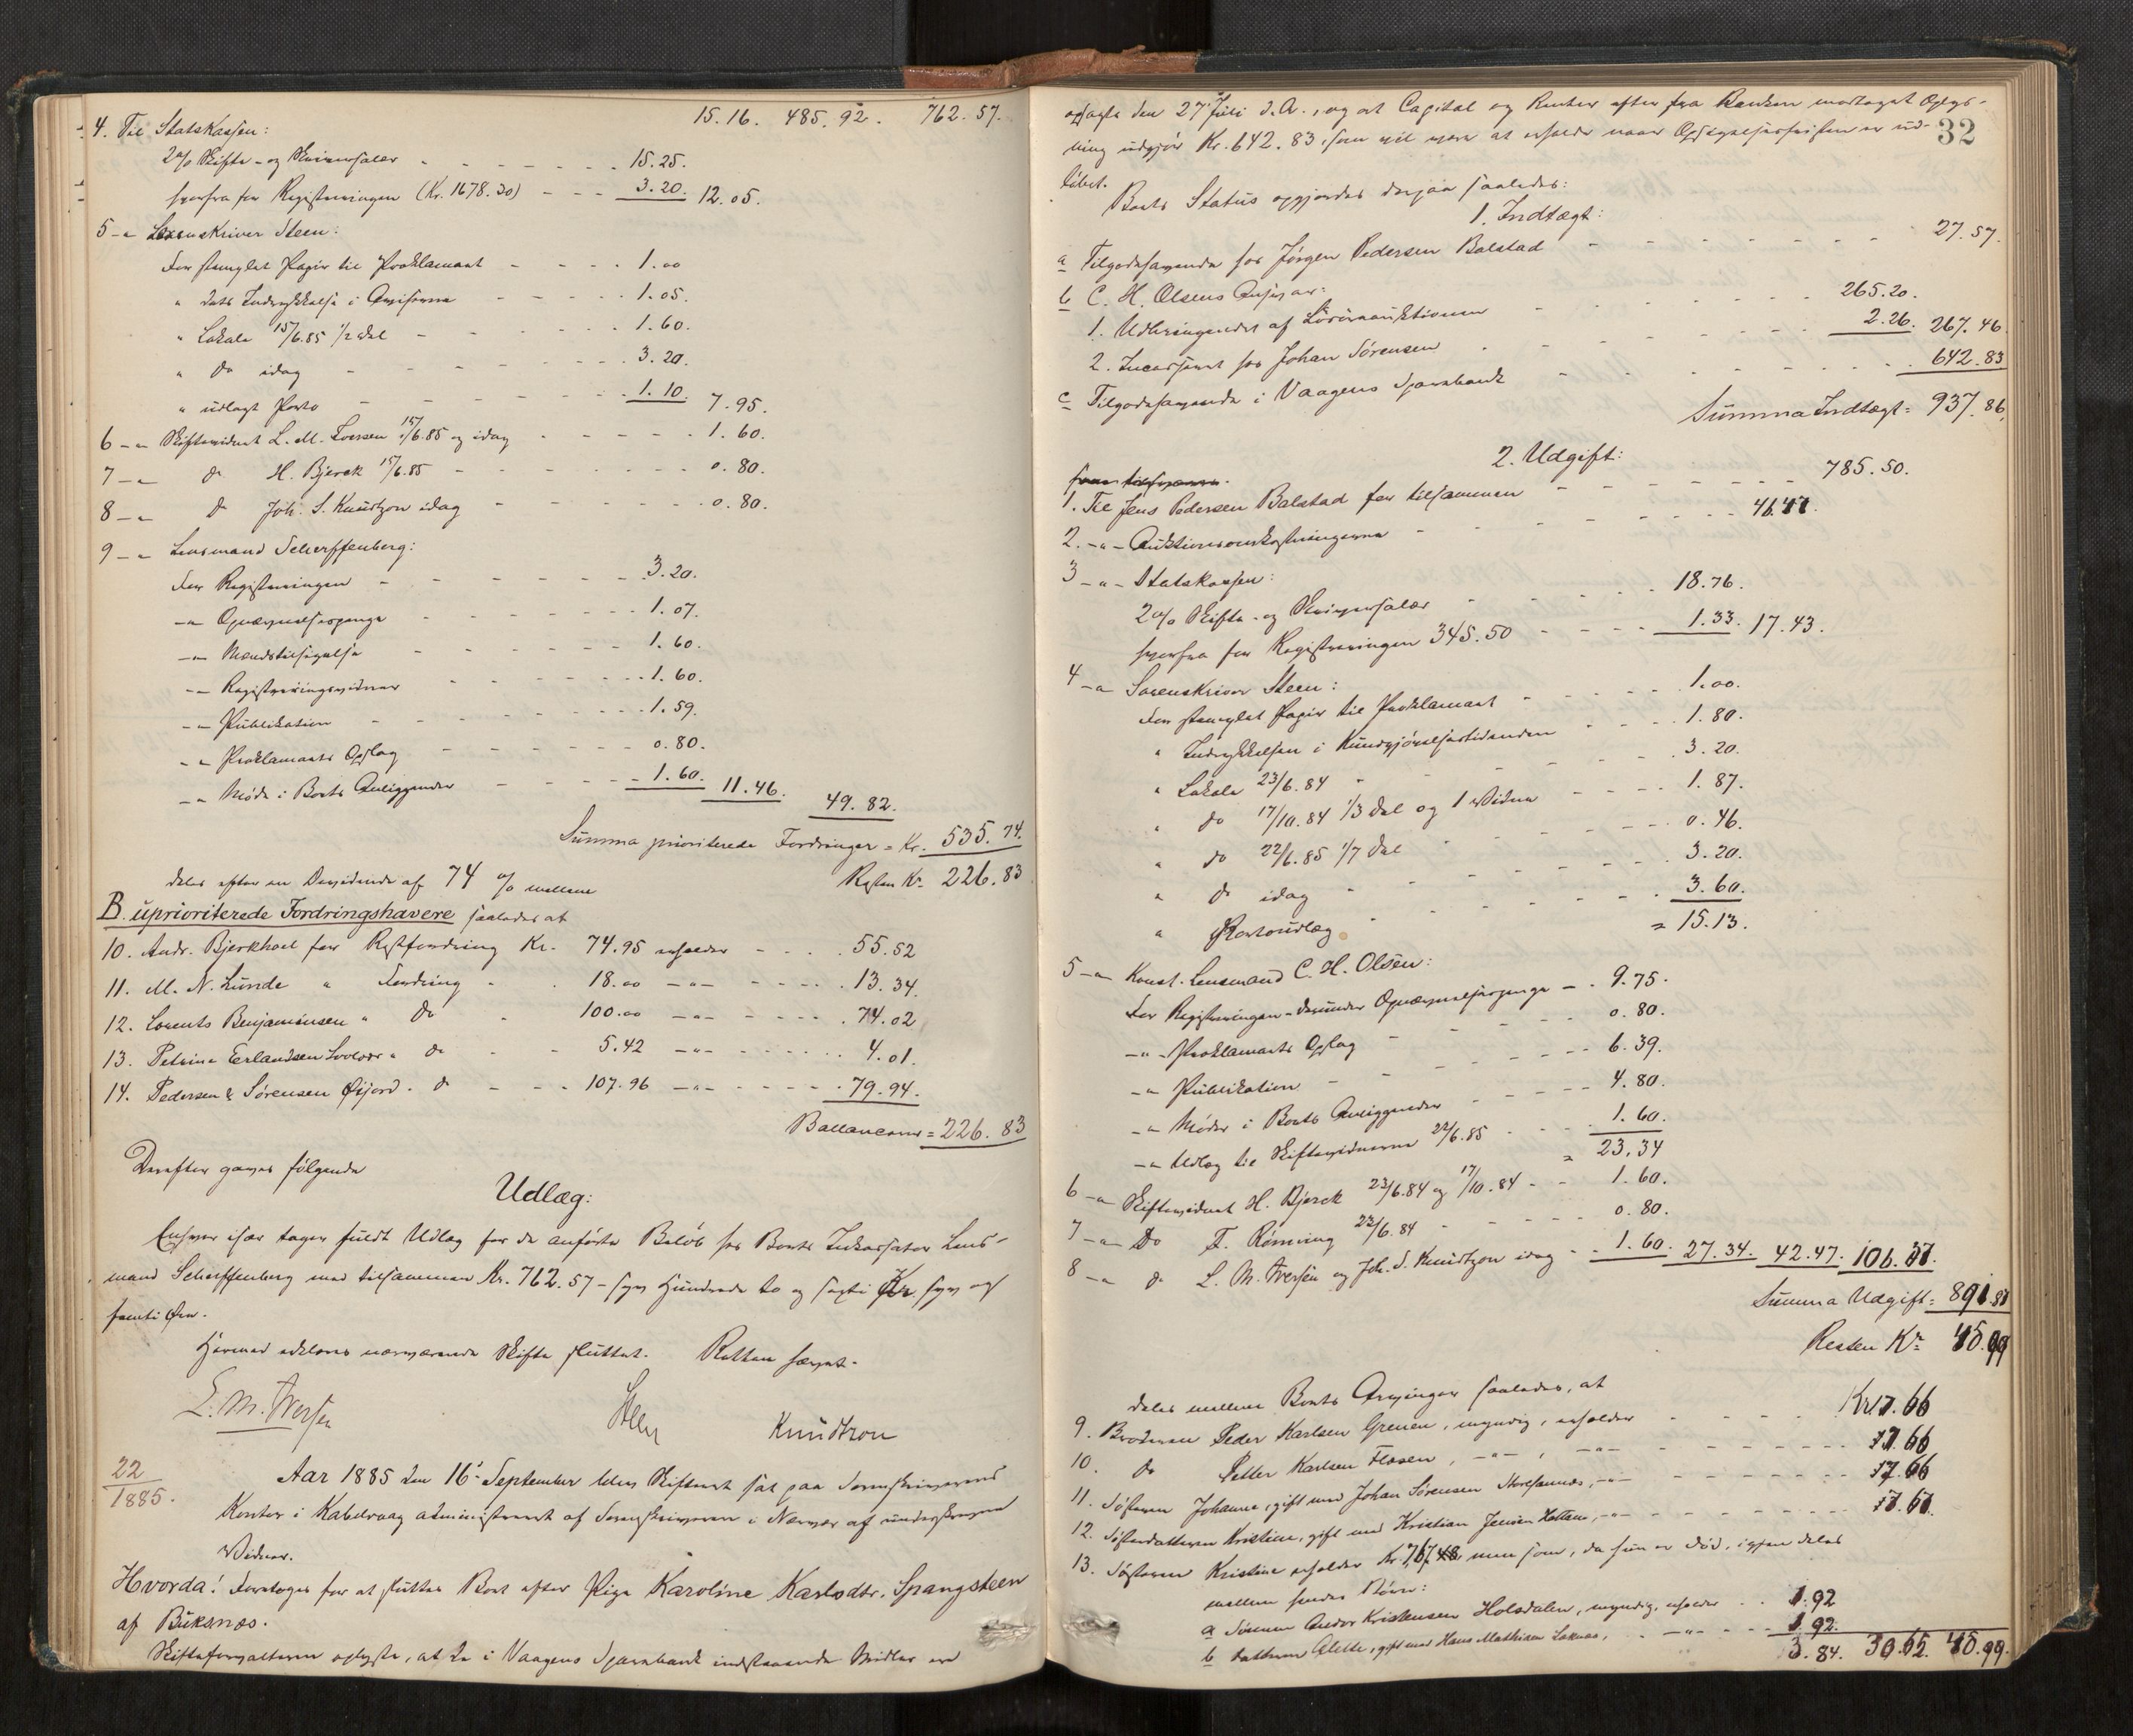 15.16. 485.92. 762.57.
4. Til Statskassen:
2% Skifte- og Skriversalær - - - 15.25.
herfra for Registreringen (Kr. 1678.30) - - - 3.20. 12.05.
5 -"- Sorenskriver Steen:
For stemplet Papir til Proklamaet - - - 1.00
" dets Indrykkelse i Aviserne - - - 1.05.
" Lokale 15/6.85 1/2 Del - - - 1.60.
" do idag - - - 3.20.
" udlagt Porto - - - 1.10. 7.95.
6 -"- Skiftevidnet L. M. Iversen 15/6.85 og idag - - - 1.60.
7 -"- do H. Bjerck 15/6.85 - - - 0.80.
8 -"- do Joh. S. Knudtzon idag - - - 0.80.
9 -"- Lensmand Scherffenberg:
For Registreringen - - - 3.20.
-"- Opnævnelsespenge - - - 1.07.
-"- Mandstilsigelse - - - 1.60.
-"- Registreringsvidner - - - 1.60.
-"- Publikation - - - 1.59.
-"- Proklamaets Opslag - - - 0.80.
-"- Møde i Boets Anliggender - - - 1.60. 11.46. 49.82.
Summa prioriterede Fordringer = Kr. 535.74.
Resten Kr. 226.83
deles efter en Dividende af 74 % mellem
B. uprioriterede Fordringshavere saaledes at
10. Andr. Bjerkhoel for Restfordring Kr. 74.95 erholder - - - 55.52
11. M. N. Lunde " Fordring " 18.00 -"- - - - 13.34.
12. Lorents Benjaminsen " do " 100.00 -"- - - - 74.02
13. Petrine Erlandsen " do - - 5.42 -"- - - - 4.01.
14. Pedersen & Sørensen Øijord " do - - - 107.96 -"- - - - 79.94.
Ballancerer = 226.83
Derefter gaves følgende
Udlæg:
Enhver især tager fuldt Udlæg for de anførte Beløb hos Boets Inkassator Lens-
mand Scherffenberg med tilsammen Kr. 762.57 - syv Hundrede to og sexti Kr. syv og
femti Øre.
Hermed erklæres nærværende Skifte sluttet. Retten hævet.
L. M. Iversen Steen Knudtzon
22/1885.
Aar 1885 den 16' September blev Skifteret sat paa Sorenskriverens
Kontor i Kabelvaag administreret af Sorenskriveren i Nærvær af underskrevne
Vidner.
Hvorda! Foretoges for at sluttes Boet efter Pige Karoline Karlsdtr. Spangsteen
af Buksnæs.
Skifteforvalteren oplyste, at de i Vaagens Sparebank indstaaende Midler ere
32
opsagte den 27' Juli d. A., og at Capital og Renter efter fra Banken modtaget Opgiv-
ning udgjør Kr. 642.83, som vil være at erholde naar Opsigelsesfristen er ud-
løbet.
Boets Status opgjordes derpaa saaledes:
1. Indtægt:
a Tilgodehavende hos Jørgen Pedersen Balstad - - - 27.57.
b C. H. Olsens Ansvar:
1. Udbringendet af Løsøreauktionen - - - 265.20.
2. Incasseret hos Johan Sørensen - - - 2.26. 267.46.
c Tilgodehavende i Vaagens Sparebank - - - 642.83
Summa Indtægt = 937.86,
2. Udgift:
1. Til Jens Pedersen Balstad for tilsammen - - - 785.50.
2. -"- Auktionsomkostningerne - - - 46.47.
3 -"- Statskassen:
2% Skifte- og Skriversalær - - - 18.76.
herfra for Registreringen 345.50 - - - 1.33. 17.43.
4 -"- Sorenskriver Steen:
For stemplet Papir til Proklamaet - - - 1.00.
" Indrykkelsen i Kundgjørelsestidenden - - - 1.80.
" Lokale 23/6.84 - - - 3.20.
" do 17/10.84 1/3 Del og 1 Vidne - - - 1.87.
" do 22/6.85 1/7 Del - - - 0.46.
" do idag - - - 3.20.
" Portoudlæg - - - 3.60.
= 15.13.
5 -"- Konst. Lensmand C. H. Olsen:
For Registreringen - derunder Opnævnelsespenge - - 9.75.
-"- Proklamaets Opslag - - - 0.80.
-"- Publikation - - - 6.39.
-"- Møder i Boets Anliggender - - - 4.80.
-"- Udlæg til Skiftevidnerne 22/6.85 - - - 1.60.
= 23.34
6 -"- Skiftevidnet H. Bjerck 23/6.84 og 17/10.84 - - 1.60.
7 -"- Do F. Rønning 23/6.84 - - - 0.80.
8 -"- do L. M. Iversen og Joh. S. Knudtzon idag - - 1.60. 27.34. 42.47. 106.37.
Summa Udgift = 891.87
Resten Kr. 45.99
deles mellem Boets Arvinger saaledes, at
9. Broderen Peder Karlsen Grenen, myndig, erholder - - - Kr. 7.66
10. do Petter Karlsen Flosen, -"-, -"- - - - 7.66
11. Søsteren Johanna, gift med Johan Sørensen -"- - - - 7.66
12. Søsterdatteren Kristine, gift med Kristian Jensen -"- - - - 7.67.
13. Søsteren Kristine erholder Kr. 7.67 men som, da hun er død, igjen deles
mellem hendes Børn:
a Sønnen Andor Kristensen Holsdalen, myndig, erholder - - 1.92
b Datteren Alette, gift med Hans Mathisen -"- - - 1.92.
3.84. 30.65. 45.99.